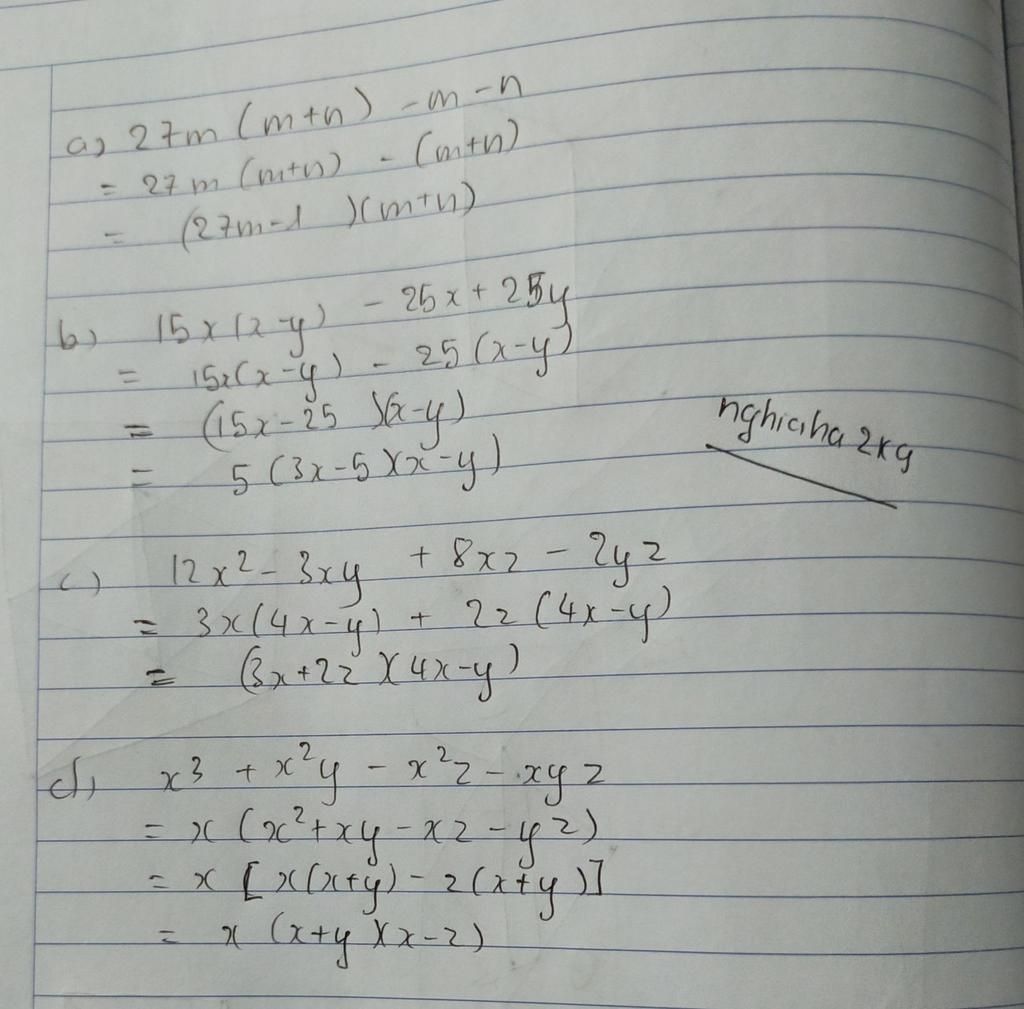 a) 27m (m+n) -m -n
= 27m (m+n) - (m+n)
= (27m-1)(m+n)
b) 15x(x-y) - 25x + 25y
= 15x(x-y) - 25(x-y)
= (15x-25)(x-y)
= 5(3x-5)(x-y)
nghiaha2k9
c) 12x² - 3xy + 8xz - 2yz
= 3x(4x-y) + 2z(4x-y)
= (3x+2z)(4x-y)
d) x³ + x²y - x²z - xyz
= x(x²+xy-xz-yz)
= x[x(x+y)-z(x+y)]
= x(x+y)(x-z)